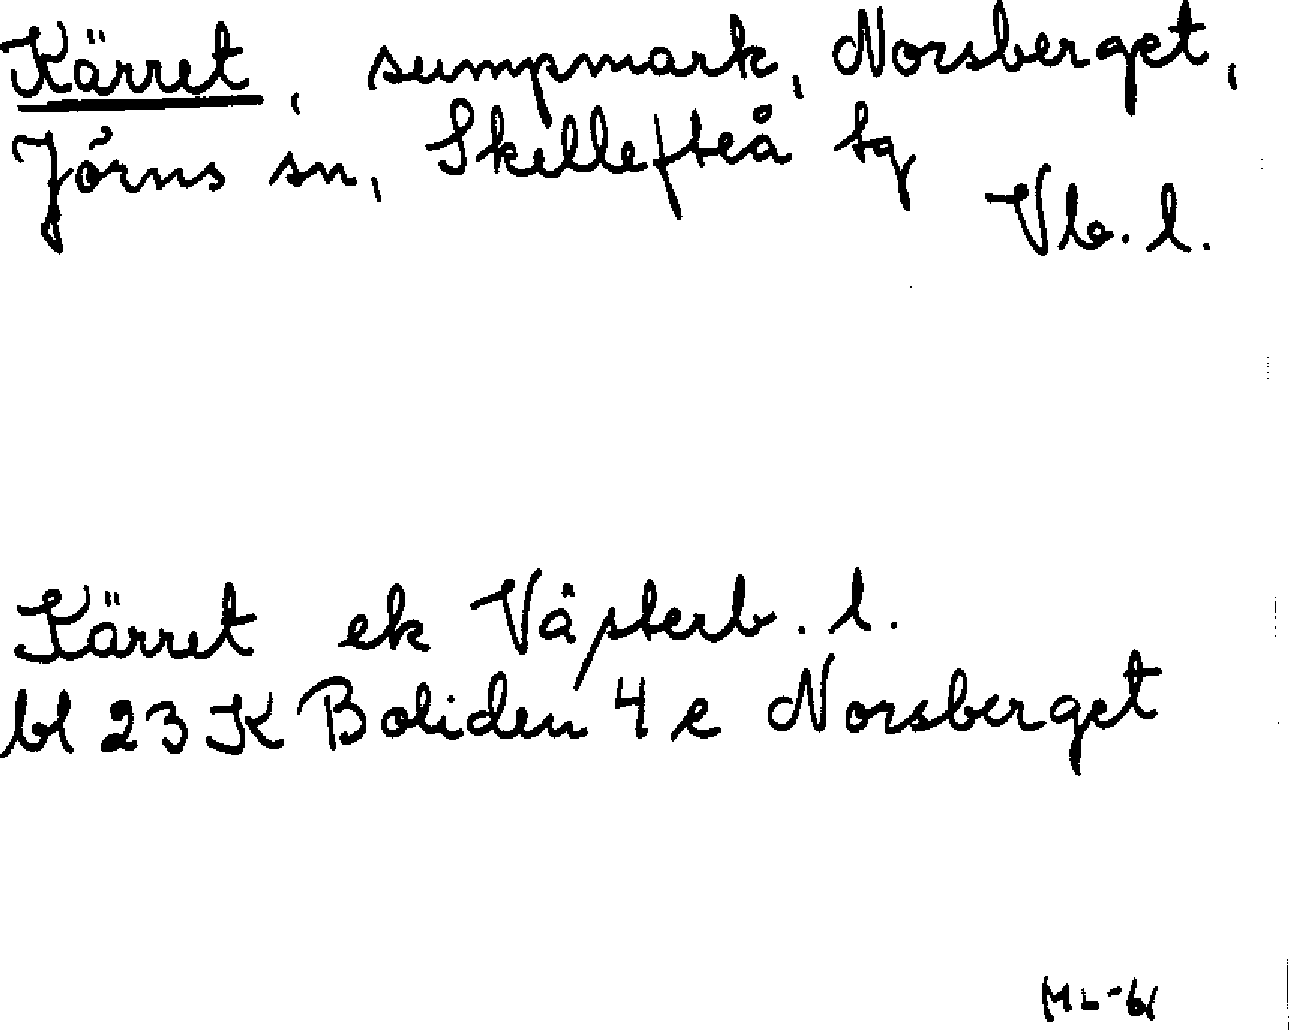 Kärret, sumpmark, Norsberget,
Jörns sn, Skellefteå tg
Vb. l.
Kärret ek Västerb. l.
bl 23 K Boliden 4 e Norsberget